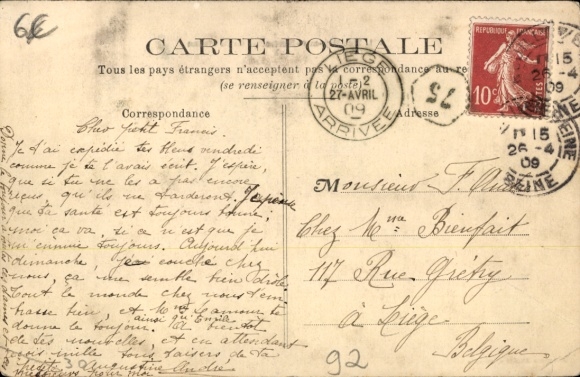 6€
CARTE POSTALE
Tous les pays étrangers n'acceptent pas la correspondance au
(se renseigner à la poste)
Correspondance
Adresse
LIEGE
2
27-AVRIL
09
ARRIVÉE
75
REPUBLIQUE FRANÇAISE
10c
POSTES
15
26-4
09
SEINE
15
26-4
09
SEINE
Cher petit Francis.
Je t'ai expédié tes vendredi
comme je te l'avais écrit. J'espère,
que si tu ne les a pas encore
reçus, qu'ils ne tarderont. J'espère
que ta santé est toujours bonne,
moi ça va, si ce n'est que je
m' comme toujours. Aujourd'hui
dimanche, couche chez
nous, ça me semble bien drôle
tout le monde chez nous t'em
brasse bien, et
ainsi qu'Emile
donne le bonjour. A bientôt
de tes nouvelles, et en attendant
mille bons baisers de ta
petite Augustine
pour moi
Monsieur F.
Chez Mme Bienfait
117 Rue Grétry
à Liège
Belgique
92